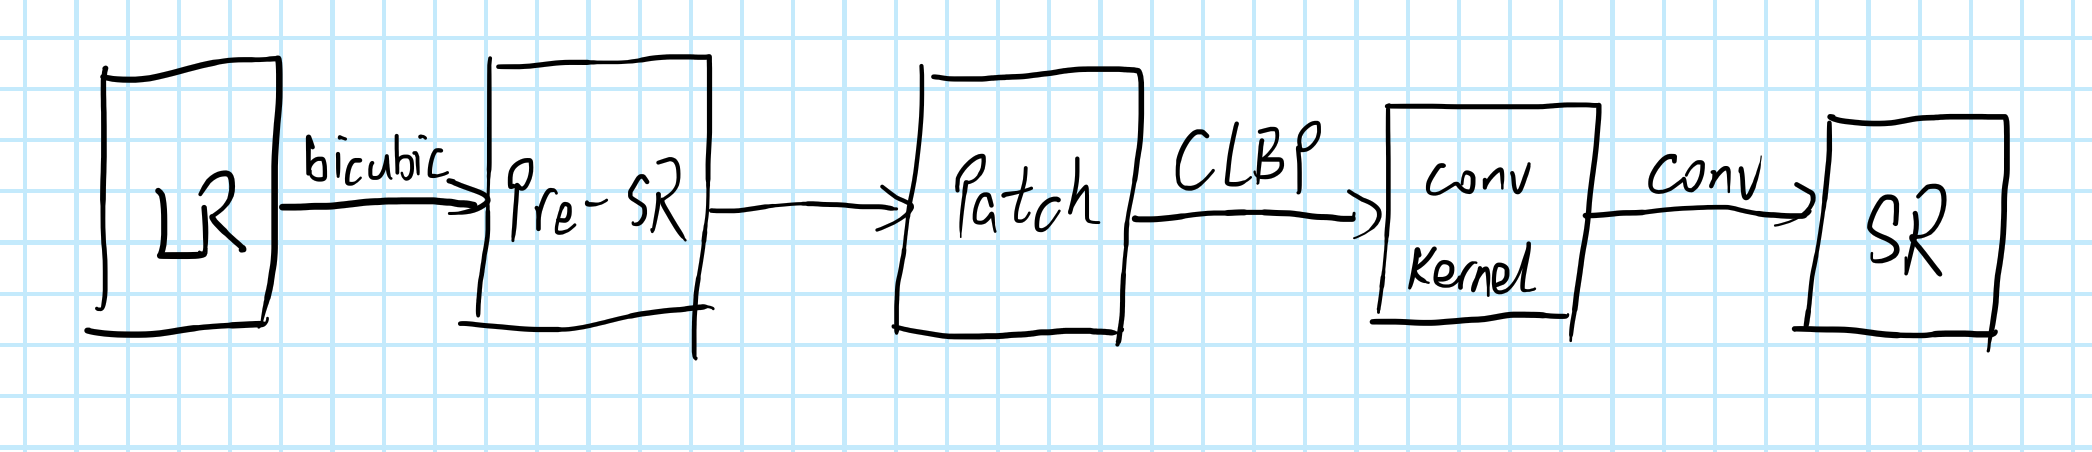 LR
bicubic
Pre-SR
Patch
CLBP
conv
kernel
conv
SR